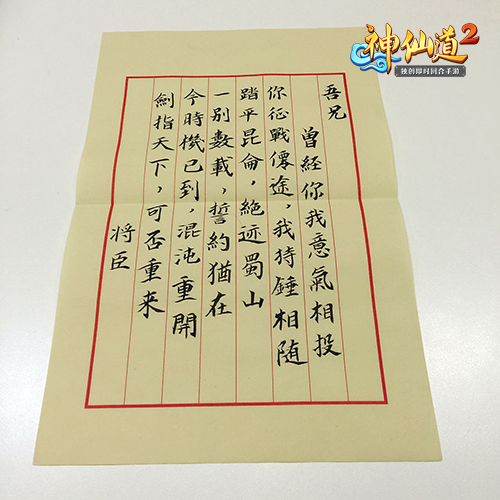 神仙道2
独创即时回合手游
吾兄
曾経你我意氣相投
你征戰僊途，我持錘相随
踏平昆侖，絕迹蜀山
一别數載，誓約猶在
今時機已到，混沌重開
劍指天下，可否重来
将臣